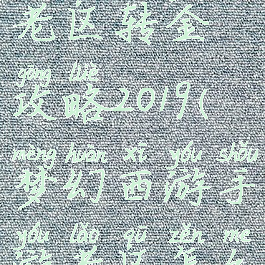 老区转金
gōng lüè
攻略2019(
mèng huàn xī yóu shǒu
梦幻西游手
yóu lǎo qū zěn me